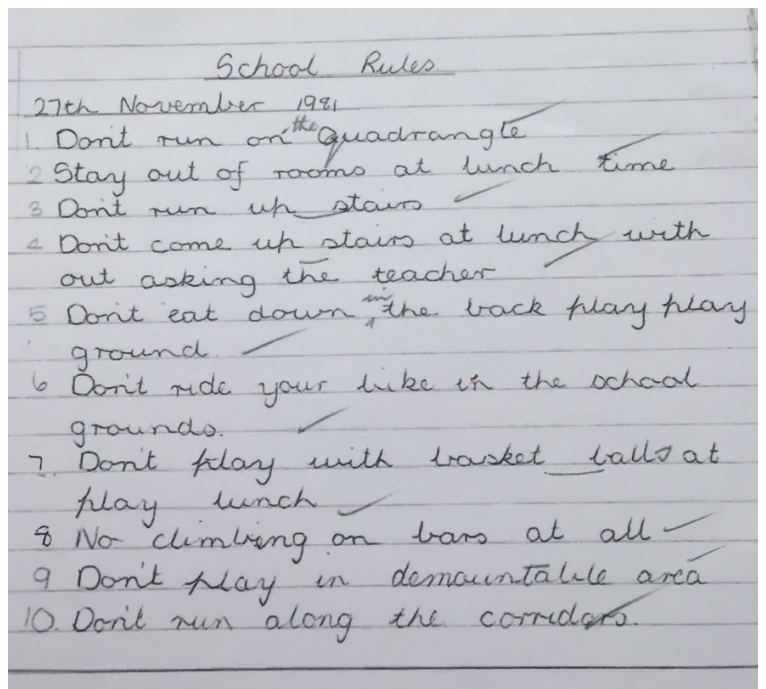 School Rules
27th November 1981
1. Don't run on the Quadrangle
2 Stay out of rooms at lunch time
3 Don't run up stairs
4 Don't come up stairs at lunch with
out asking the teacher
5 Don't eat down in the back play play
ground
6 Don't ride your bike in the school
grounds.
7. Don't play with basket balls at
play lunch
8 No climbing on bars at all
9 Don't play in demountable area
10. Don't run along the corridors.